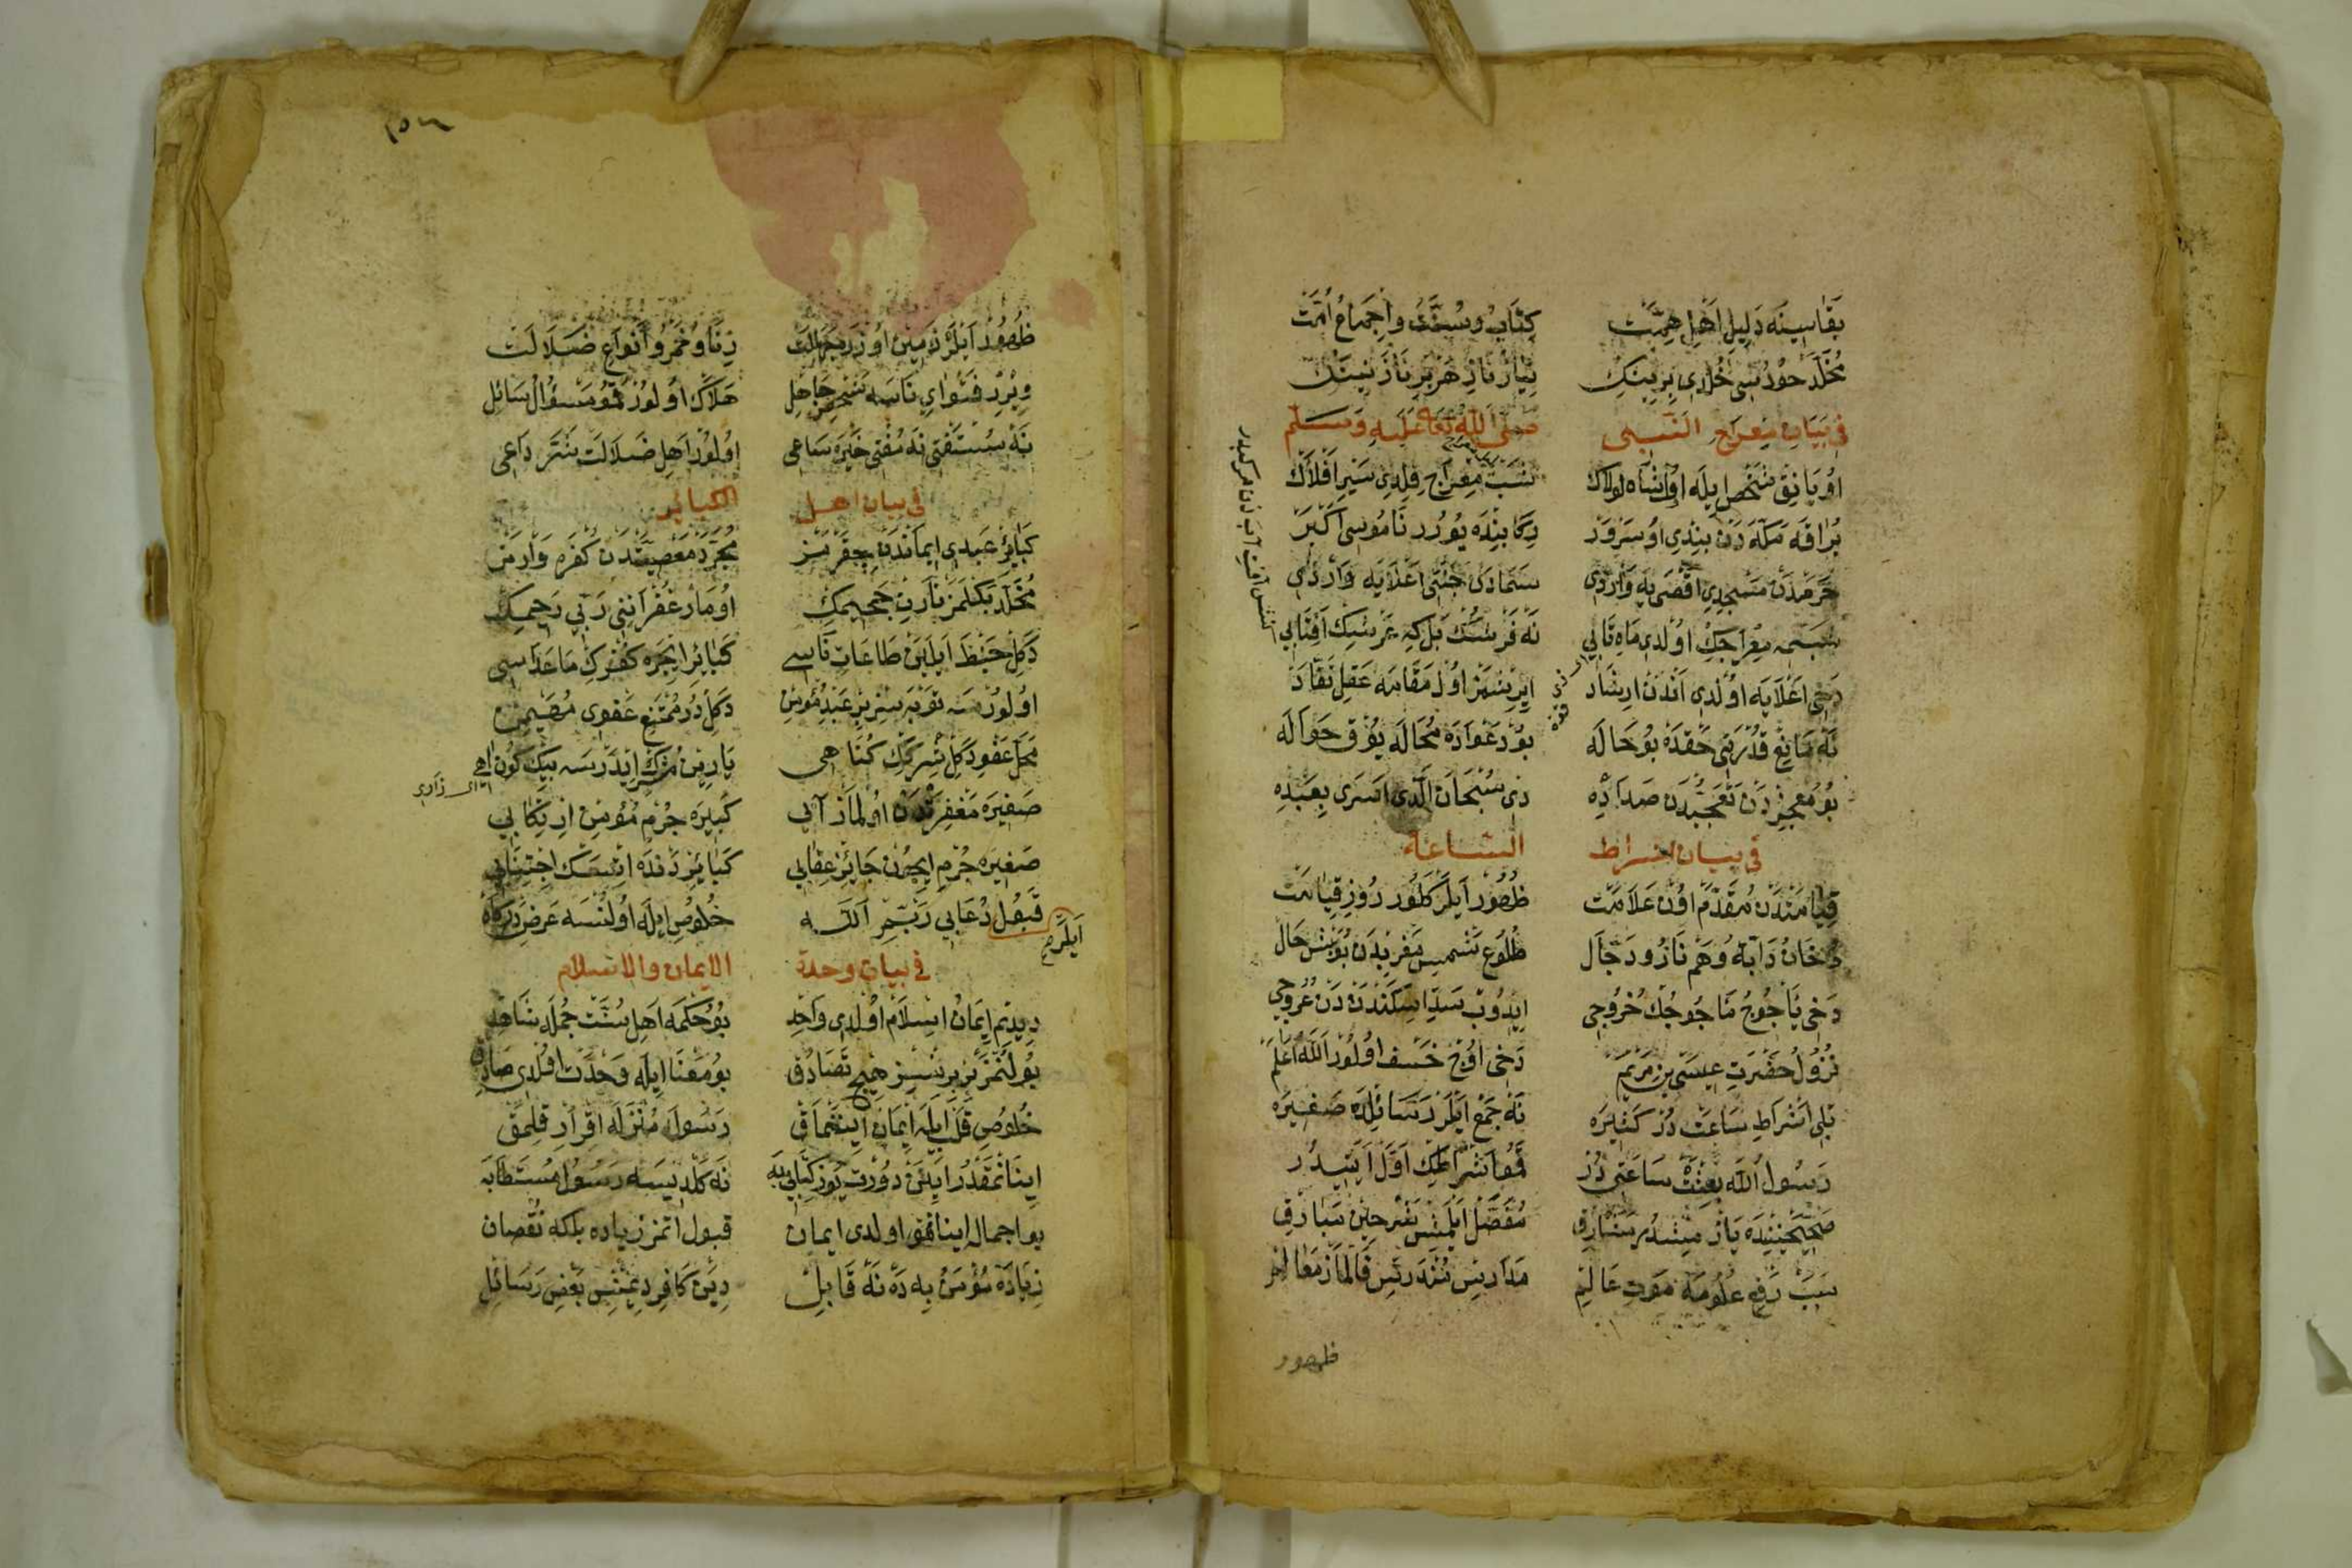 بقاسینه دلیل اهل همت کتاب و سنت و اجماع امت
مخلد حور سی خلدی بریینك
فی بیان معراج النبی صلی الله تعالی علیه وسلم
اویانق شخص ایله اول شاه لولاك شب معراج قلدی سیر افلاك
براقه مکه دن بندی او سرور رکابنده یورر ناموس اکبر
حرمدن مسجد اقصی یه واردی سمادن جنتی اعلایه واردی
معراجك اولدی ماه تابی نه فرشك بل که عرشك آفتابی
دخی اعلایه اولدی اندن ارشاد ایرشمز اول مقامه عقل نقاد
نه مانع قدرتی حقده بو حاله بو دعواده محاله یوق حواله
بو معجزدن تعجبدن صداده دی سبحان الذی اسری بعبده
فی بیان اشراط الساعة
قیامتدن مقدم اون علامت ظهور ایلر کلور روز قیامت
دخان دابه و هم نار و دجال طلوع شمس مغربدن بو بش حال
دخی یأجوج مأجوجك خروجی ایدوب سد اسکندردن عروجی
نزول حضرت عیسی بن مریم دخی اوج خسف اولور الله اعلم
بلی اشراط ساعت در کثیره نه جمع ایلر رسائلده صغیره
رسول الله بعثت ساعتی در قمو اشراطك اول آیتیدر
صحیحینده یازمشدر مشارق مفصل ایلمش شرحین مبارق
سبب رفع علومه موت عالم مدارس مندرس قالماز معالم
ظهور
ظهور ایلر زمین اوزره جهالت زنا و خمر و انواع ضلالت
ویرر فتوای ناسه شخص جاهل هلاك اولور قمو مسؤل سائل
نه مستفتی نه مفتی خیره ساعی اولور اهل ضلالت شره داعی
فی بیان اهل الکبائر
کبائر عبدی ایماندن چقرمز مجرد معصیتدن کفره وارمز
مخلد بکلمز نارن جحیمك اومار غفرانی ربی رحیمك
دکل حبط ایلین طاعات ناسی کبائر ایچره کفرك ماعداسی
اولورسه توبه سز بر عبد مؤمن دکلدر ممتنع عفوی مهیمن
محل عفو دکل شرکك کناهی یارین مشرك ایدرسه بیك کون اهی
صغیره مغفرتدن اولماز آبی کبیره جرم مؤمن ارتکابی
صغیره جرم ایچون جائز عقابی کبائر دنده ایتسك اجتنابی
قبول دعایی ربم الله خلوص ایله اولنسه عرض درکاه
ایلرم
فی بیان وحدة الایمان والاسلام
دیدیم ایمان اسلام اولدی واحد بو حکمه اهل سنت جمله شاهد
بولنمز بر برسیز هیچ تصادق بو معنا ایله وحدت اولدی صادق
خلوص قلب ایله ایمان اینانماق رسول منزله اقرار قلمق
اینانمقدر ایلین دورت یوز کتابه نه کلدیسه رسول مستطابه
بو اجماله اینانمق اولدی ایمان قبول اتمز زیاده بلکه نقصان
زیاده مؤمن به ده نه قابل دین کافر دیمش بعض رسائل